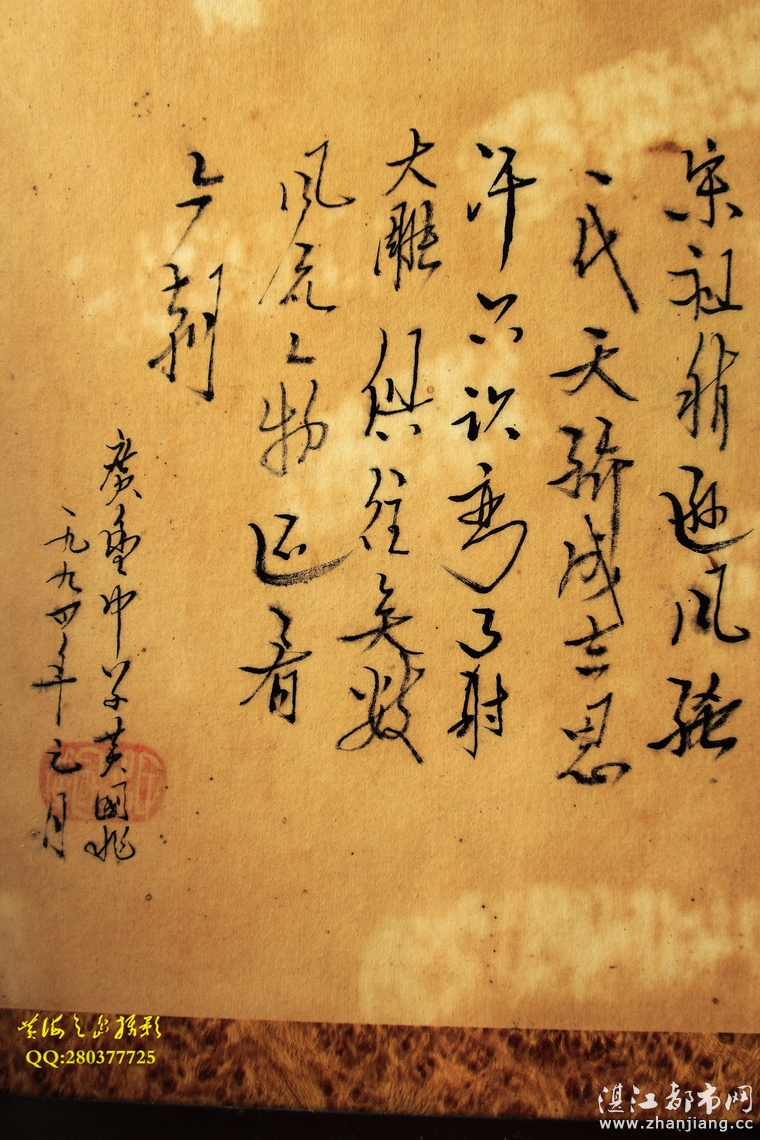 宋祖稍逊风骚
一代天骄成吉思
汗只识弯弓射
大雕俱往矣数
风流人物还看
今朝
中学黄国
一九九四年元月
摄影
QQ:280377725
湛江都市网
www.zhanjiang.cc